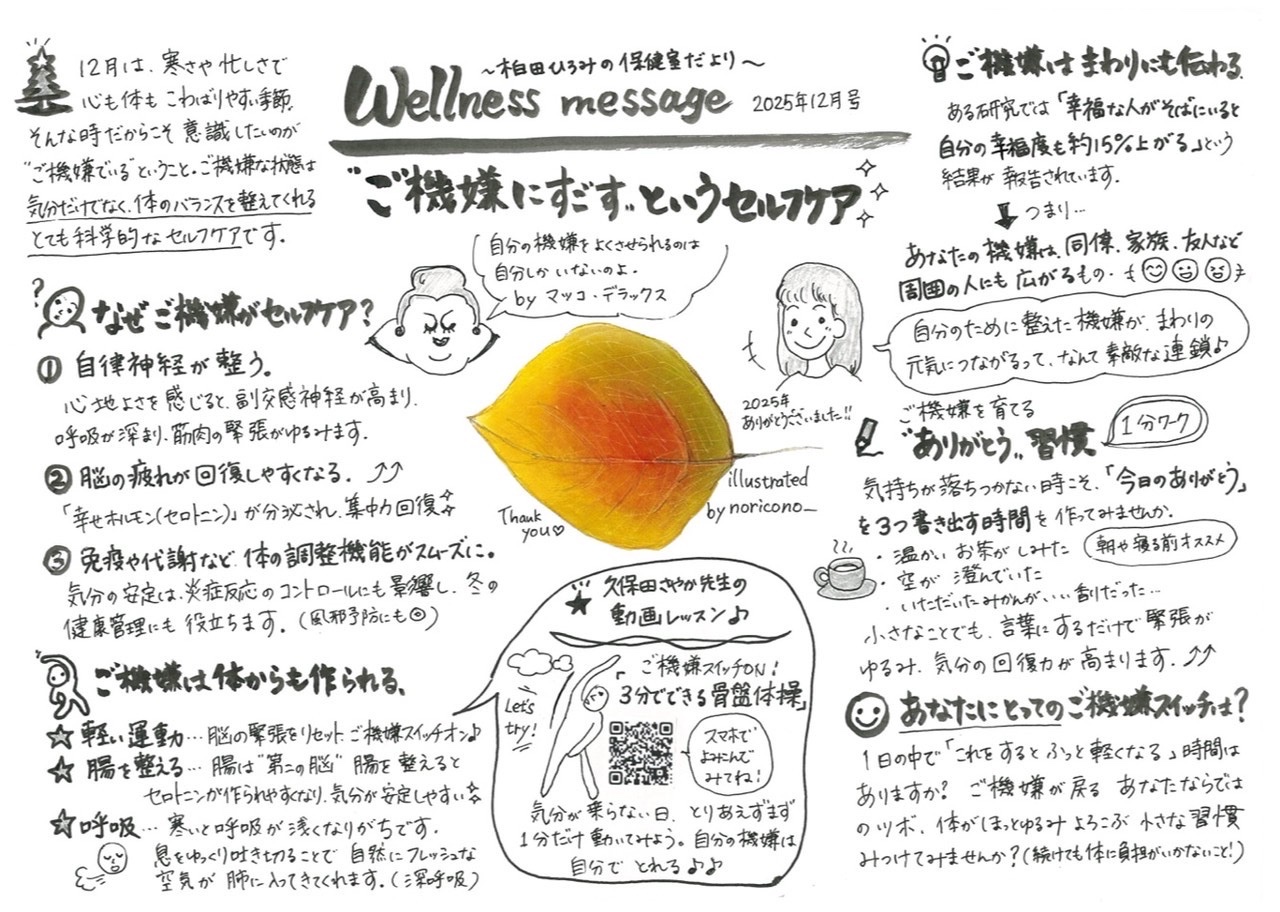 ～柏田ひろみの保健室だより～
Wellness message 2025年12月号
"ご機嫌にすごす"というセルフケア
12月は、寒さや忙しさで
心も体もこわばりやすい季節。
そんな時だからこそ意識したいのが
"ご機嫌でいる"ということ。ご機嫌な状態は
気分だけでなく、体のバランスを整えてくれる
とても科学的なセルフケアです。
自分の機嫌をよくさせられるのは
自分しかいないのよ。
by マツコ・デラックス
?
なぜご機嫌がセルフケア?
① 自律神経が整う。
心地よさを感じると、副交感神経が高まり、
呼吸が深まり、筋肉の緊張がゆるみます。
② 脳の疲れが回復しやすくなる。
「幸せホルモン(セロトニン)」が分泌され、集中力回復
③ 免疫や代謝など、体の調整機能がスムーズに。
気分の安定は、炎症反応のコントロールにも影響し、冬の
健康管理にも役立ちます。(風邪予防にも◎)
ご機嫌は体からも作られる。
☆ 軽い運動…脳の緊張をリセット ご機嫌スイッチオン♪
☆ 腸を整える…腸は"第二の脳" 腸を整えると
セロトニンが作られやすくなり、気分が安定しやすい
☆ 呼吸…寒いと呼吸が浅くなりがちです。
息をゆっくり吐き切ることで自然にフレッシュな
空気が肺に入ってきてくれます。(深呼吸)
2025年
ありがとうございました!!
Thank
you♡
illustrated
by noricono_
★ 久保田さやか先生の
動画レッスン♪
Let's
try!
「ご機嫌スイッチON!
3分でできる骨盤体操」
スマホで
よみこんで
みてね!
気分が乗らない日、とりあえずまず
1分だけ動いてみよう。自分の機嫌は
自分でとれる♪♪
ご機嫌はまわりにも伝わる。
ある研究では「幸福な人がそばにいると
自分の幸福度も約15%上がる」という
結果が報告されています。
つまり…
あなたの機嫌は、同僚、家族、友人など
周囲の人にも広がるもの。
自分のために整えた機嫌が、まわりの
元気につながるって、なんて素敵な連鎖♪
ご機嫌を育てる
"ありがとう"習慣 1分ワーク
気持ちが落ちつかない時こそ、「今日のありがとう」
を3つ書き出す時間を作ってみませんか。
・温かいお茶がしみた 朝や寝る前オススメ
・空が澄んでいた
・いただいたみかんがいい香りだった…
小さなことでも、言葉にするだけで緊張が
ゆるみ、気分の回復力が高まります。
あなたにとってのご機嫌スイッチは?
1日の中で「これをするとふっと軽くなる」時間は
ありますか? ご機嫌が戻るあなたならでは
のツボ、体がほっとゆるみよろこぶ小さな習慣
みつけてみませんか?(続けても体に負担がいかないこと!)